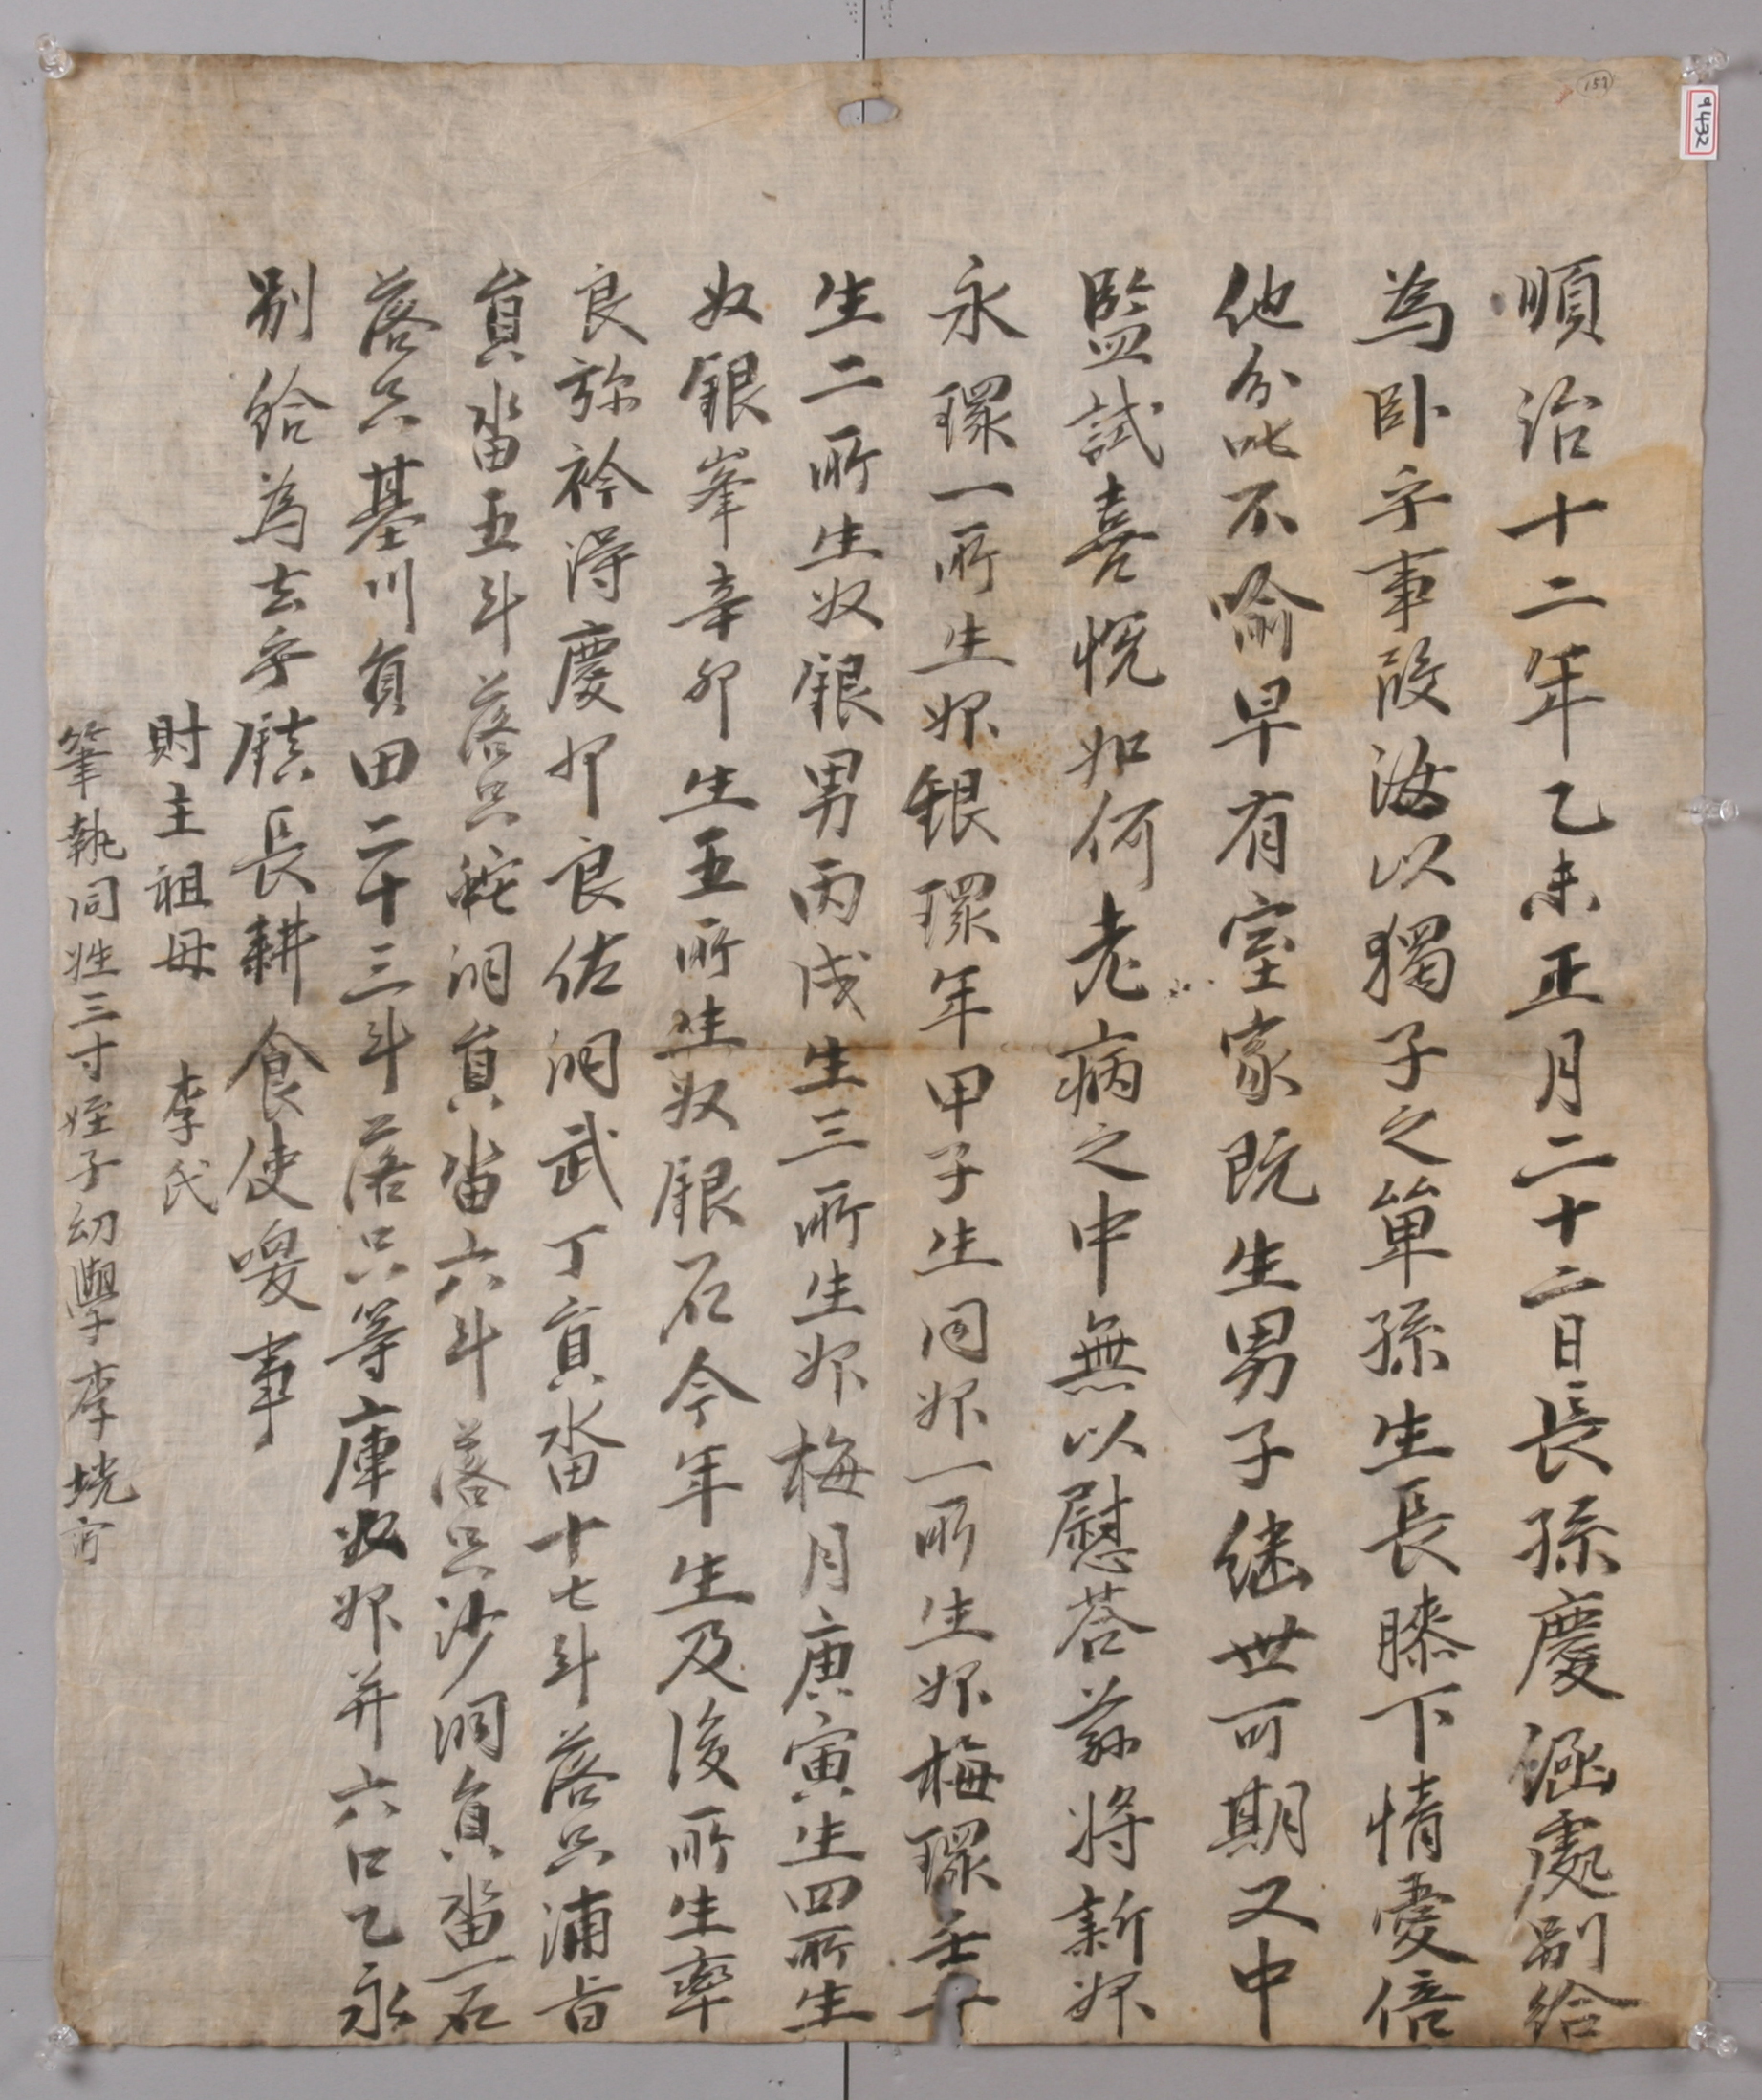 順治十二年乙未正月二十二日長孫慶涵處別給
為臥乎事段汝以獨子之單孫生長膝下情愛倍
他分叱不喻早有室家既生男子継世可期又中
監試喜悅如何老病之中無以慰荅玆將新婢
永環一所生婢銀環年甲子生同婢一所生婢梅環壬午
生二所生奴銀男丙戌生三所生婢梅月庚寅生四所生
奴銀峯辛卯生五所生奴銀石今年生及後所生率
良弥衿得慶押良佐洞武丁員畓十七斗落只浦旨
員畓五斗落只 洞員畓六斗落只沙洞員畓一石
落只基川員田二十三斗落只等庫奴婢幷六口乙永
別給為去乎鎮長耕食使喚事
財主祖母 李氏
筆執同姓三寸姪子幼學李垙
152
9432